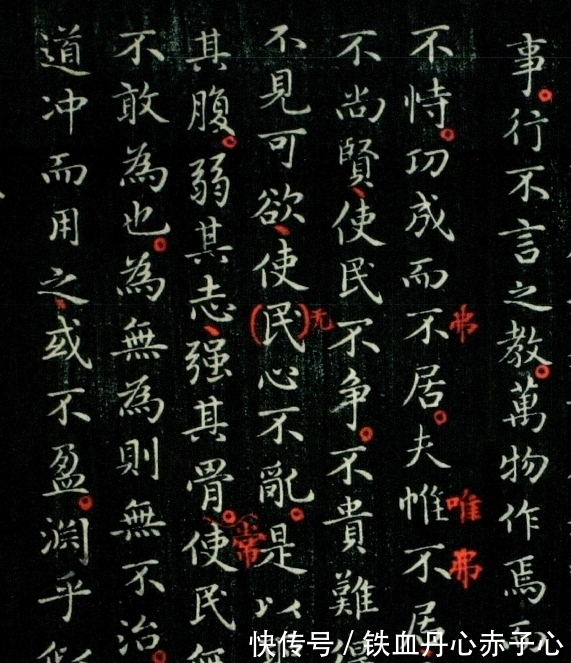 事行不言之教萬物作焉而
不恃功成而不居夫惟不居
弗
唯
弗
不尚賢使民不争不貴難得
不見可欲使(民)心不亂是以
无
其腹弱其志强其骨使民無
常
不敢為也為無為則無不治
道冲而用之或不盈渊乎
快传号/铁血丹心赤子心